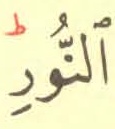 ط
ٱلنُّورِ